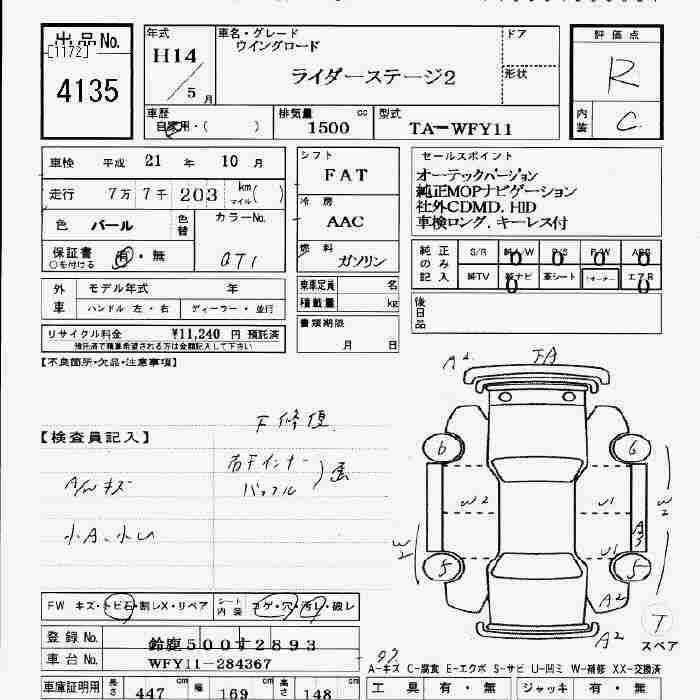 出品No.
[1172]
4135
年式
H14
/ 5 月
車名・グレード
ウイングロード
ライダーステージ2
ドア
形状
評価点
R
内装
C
車歴
自家用・( )
排気量 cc
1500
型式
TA-WFY11
車検 平成 21 年 10 月
走行 7万 7千 203 km マイル( )
色 パール
色替
カラーNo.
QT1
保証書 有・無
○を付ける
シフト
FAT
冷房
AAC
燃料
ガソリン
セールスポイント
オーテックバージョン
純正MOPナビゲーション
社外CDMD.HID
車検ロング.キーレス付
純正のみ記入
S/R 純A/W P/S P/W ABS
純TV 純ナビ 革シート エアB
後日品
外車
モデル年式 年
ハンドル 左・右 ディーラー・並行
乗車定員 名
積載量 kg
書類期限
月 日
リサイクル料金 ¥11,240 円 預託済
預託済で精算希望される方は金額記入して下さい
【不良箇所・欠品・注意事項】
【検査員記入】
F修復
右Fインナー
バッフル
A/Wキズ
小A、小U
A2 FA
6 6
W2 U1
W2 W2
A3
U1
5 5
A2
A2
T
スペア
FW キズ・トビ石・割レX・リペア
シート内装
コゲ・穴・汚レ・破レ
登録No. 鈴鹿500す2893
車台No. WFY11-284367
A-キズ C-腐食 E-エクボ S-サビ U-凹ミ W-補修 XX-交換済
車庫証明用 長さ 447 幅 169 高さ 148
工具 有・無 ジャッキ 有・無